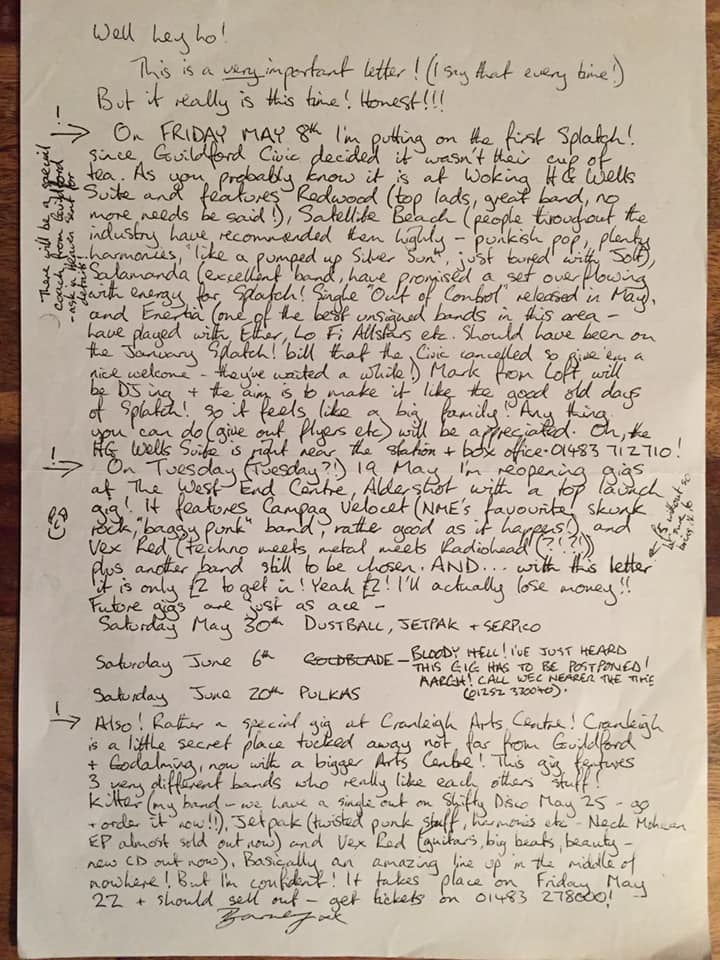 Well hey ho!
This is a very important letter! (I say that every time!)
But it really is this time! Honest!!!
On FRIDAY MAY 8th I'm putting on the first Splatch!
since Guildford Civic decided it wasn't their cup of
tea. As you probably know it is at Woking HG Wells
Suite and features Redwood (top lads, great band, no
more needs be said!), Satellite Beach (people throughout the
industry have recommended them highly - punkish pop, plenty
harmonies, "like a pumped up Silver Sun", just toured with Jolt),
Salamanda (excellent band, have promised a set overflowing
with energy for Splatch! Single "Out of Control" released in May,
and Enertia (one of the best unsigned bands in this area -
have played with Ether, Lo Fi Allstars etc. Should have been on
the January Splatch! bill that the Civic cancelled so give 'em a
nice welcome - they've waited a while!) Mark from Loft will
be DJing + the aim is to make it like the good old days
of Splatch! so it feels like a big family! Any thing
you can do (give out flyers etc) will be appreciated. Oh, the
HG Wells Suite is right near the station + box office · 01483 712710!
There will be a special
coach from Guildford
- ask
details!
On Tuesday (Tuesday?!) 19 May I'm reopening gigs
at The West End Centre, Aldershot with a top launch
gig! It features Campag Velocet (NME's favourite skunk
rock, "baggy punk" band, rather good as it happens!), and
Vex Red (techno meets metal meets Radiohead (?!?!))
plus another band still to be chosen. AND... with this letter
it is only £2 to get in! Yeah £2! I'll actually lose money!!
without
bring it
Future gigs are just as ace -
Saturday May 30th DUSTBALL, JETPAK + SERPICO
Saturday June 6th GOLDBLADE - BLOODY HELL! I'VE JUST HEARD
THIS GIG HAS TO BE POSTPONED!
AARGH! CALL WEC NEARER THE TIME
(01252 330040).
Saturday June 20th PULKAS
Also! Rather a special gig at Cranleigh Arts Centre! Cranleigh
is a little secret place tucked away not far from Guildford
+ Godalming, now with a bigger Arts Centre! This gig features
3 very different bands who really like each others stuff!
Kitter (my band - we have a single out on Shifty Disco May 25 - go
+ order it now!!), Jetpak (twisted punk stuff, harmonies etc - Neck Mohican
EP almost sold out now) and Vex Red (guitars, big beats, beauty -
new CD out now). Basically an amazing line up in the middle of
nowhere! But I'm confident! It takes place on Friday May
22 + should sell out - get tickets on 01483 278000!